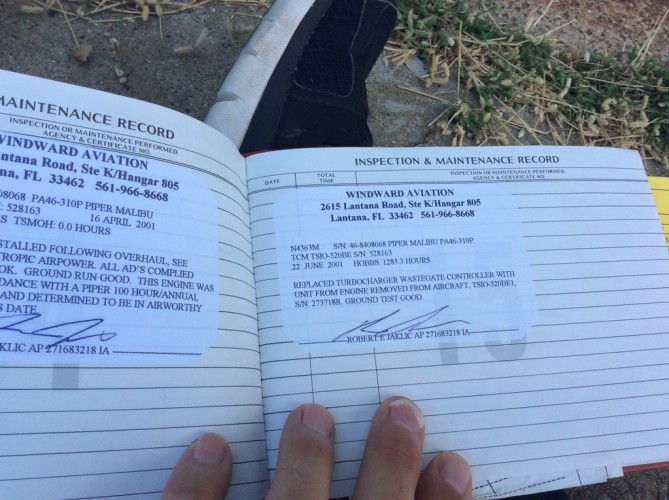 MAINTENANCE RECORD
INSPECTION OR MAINTENANCE PERFORMED
AGENCY & CERTIFICATE NO.
WINDWARD AVIATION
Lantana Road, Ste K/Hangar 805
FL 33462 561-966-8668
PA46-310P PIPER MALIBU
: 528163 16 APRIL 2001
TSMOH: 0.0 HOURS
STALLED FOLLOWING OVERHAUL, SEE
TROPIC AIRPOWER, ALL AD'S COMPLIED
OK. GROUND RUN GOOD. THIS ENGINE WAS
DANCE WITH A PIPER 100 HOUR/ANNUAL
AND DETERMINED TO BE IN AIRWORTHY
DATE.
JAKLIC AP 271683218 IA
INSPECTION & MAINTENANCE RECORD
DATE
TOTAL
TIME
INSPECTION OR MAINTENANCE PERFORMED
AGENCY & CERTIFICATE NO.
WINDWARD AVIATION
2615 Lantana Road, Ste K/Hangar 805
Lantana, FL 33462 561-966-8668
N4363M S/N: 46-8408068 PIPER MALIBU PA46-310P
TCM TSIO-520BE S/N: 528163
22 JUNE 2001 HOBBS: 1283.3 HOURS
REPLACED TURBOCHARGER WASTEGATE CONTROLLER WITH
UNIT FROM ENGINE REMOVED FROM AIRCRAFT, TSIO-520BE1,
S/N: 273718R. GROUND TEST GOOD.
ROBERT E JAKLIC AP 271683218 IA